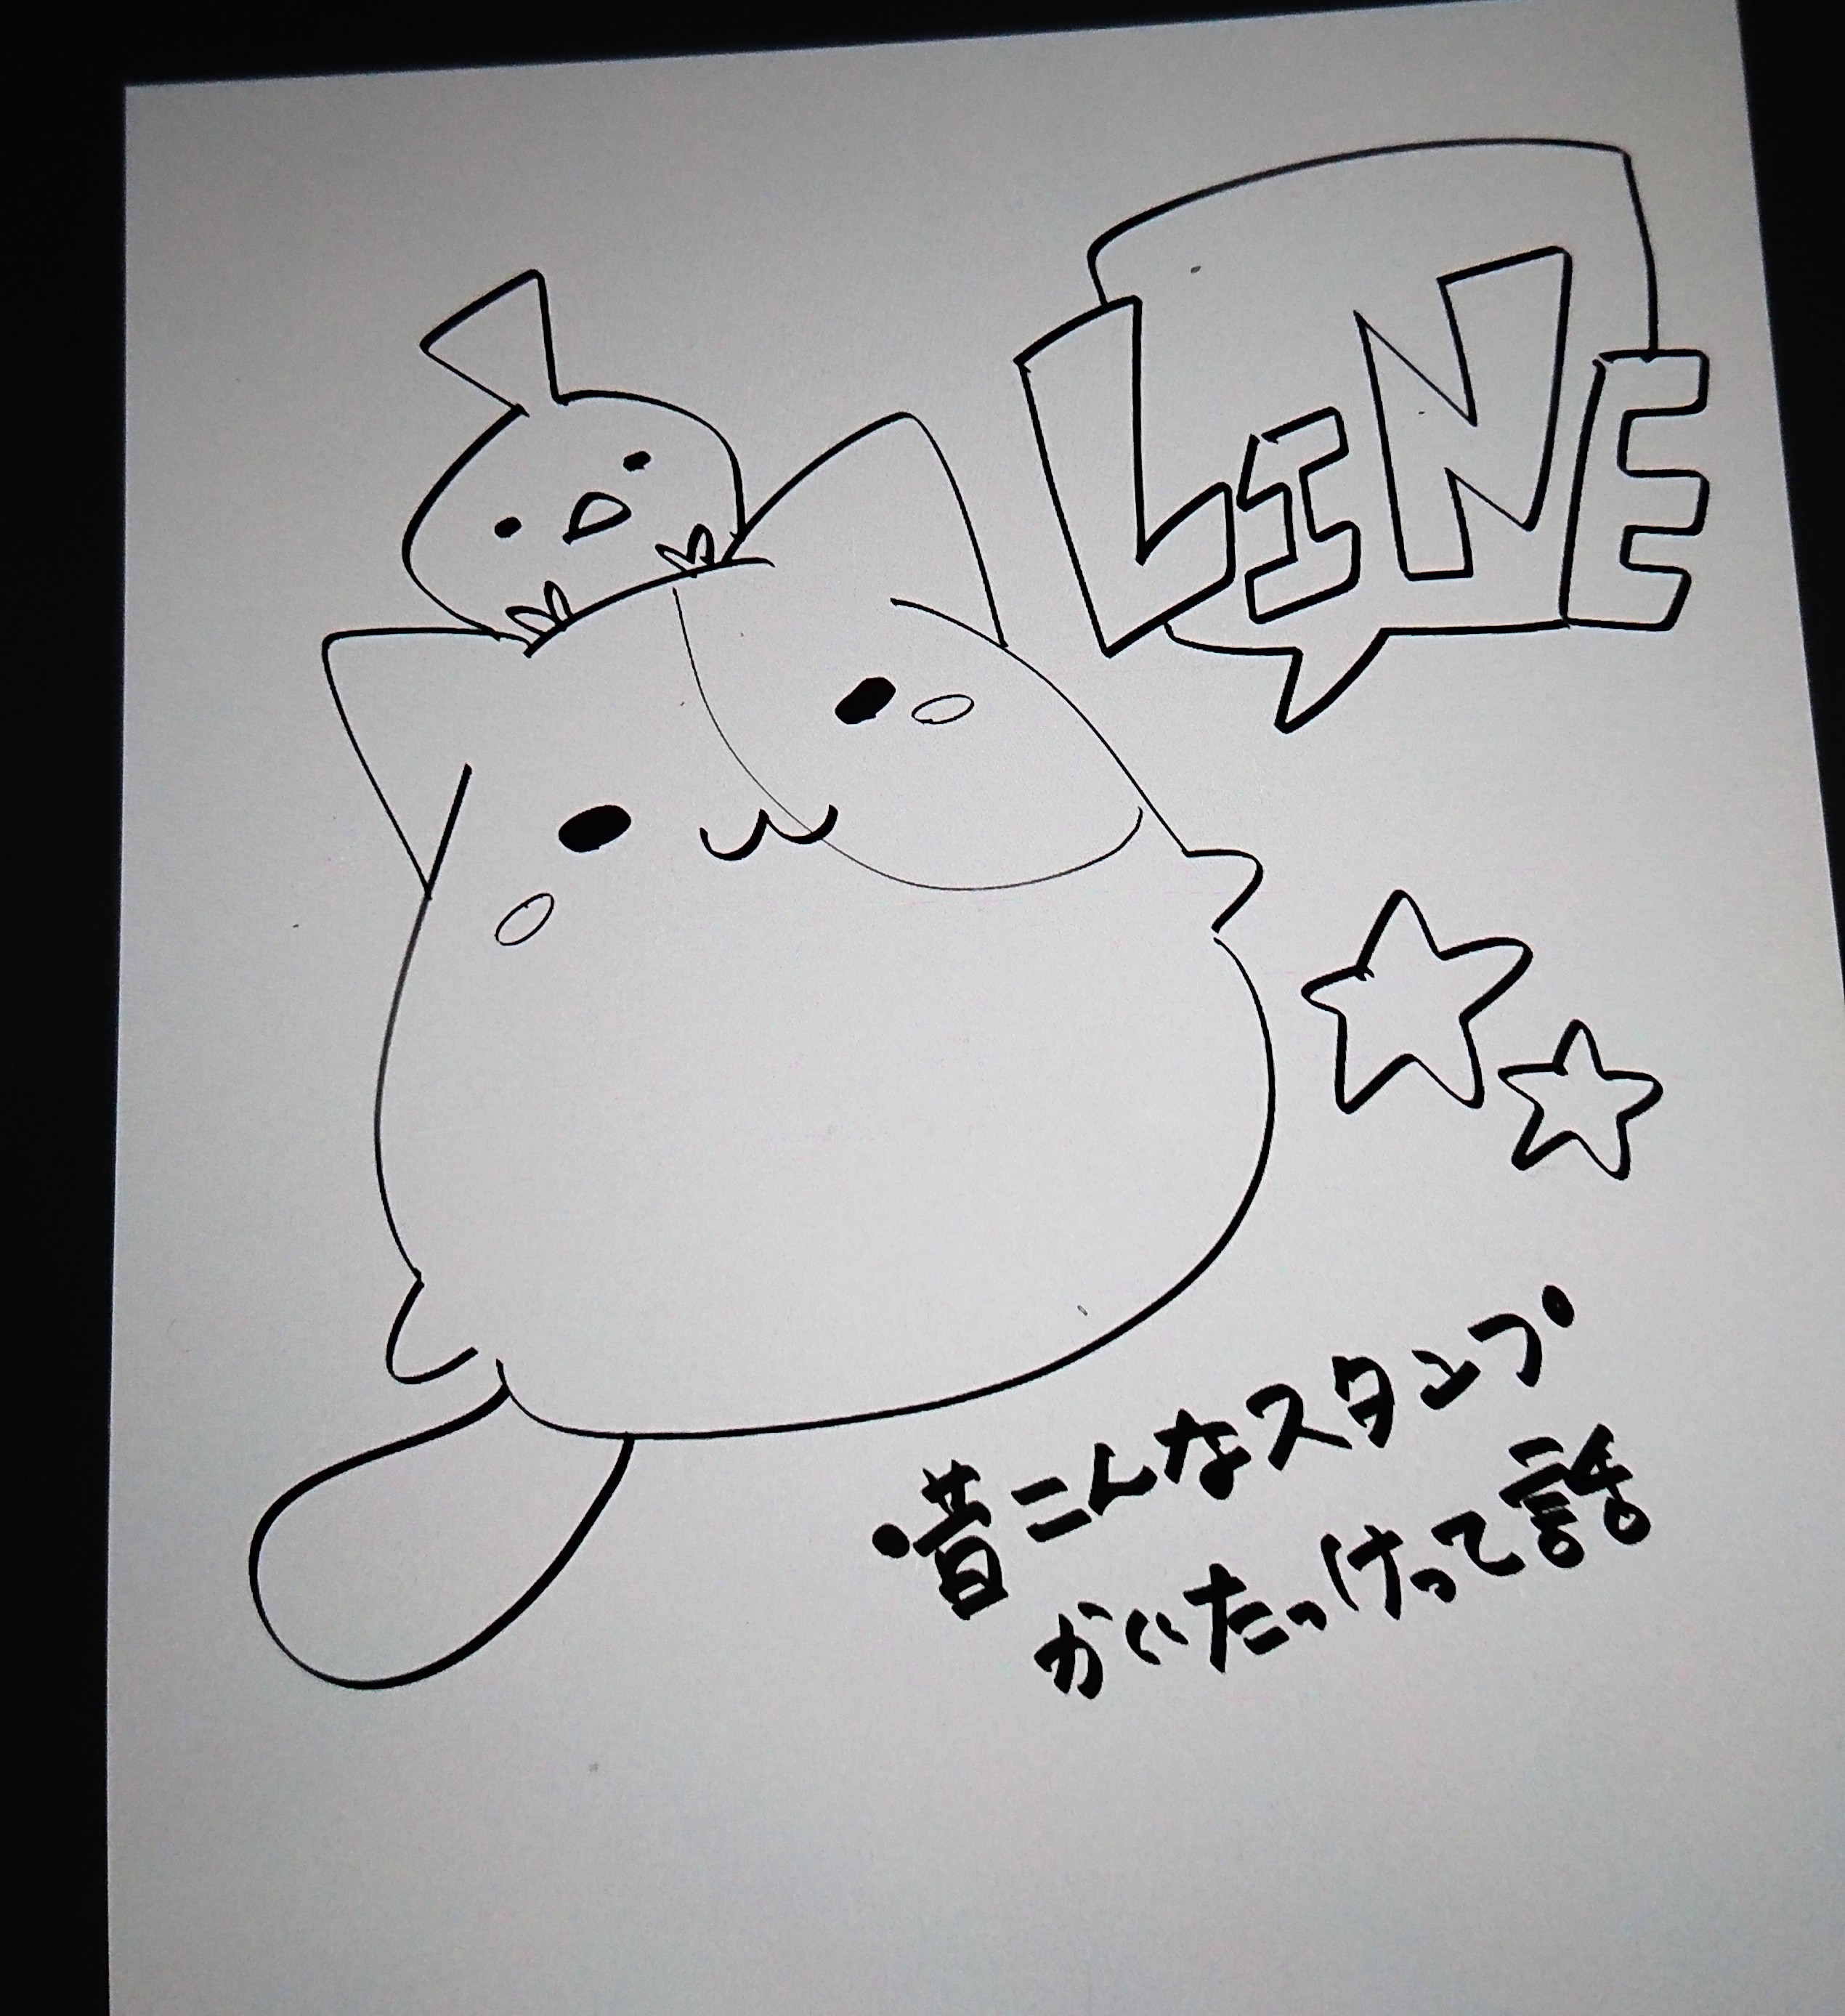 LINE
・昔こんなスタンプ
かいたっけって話